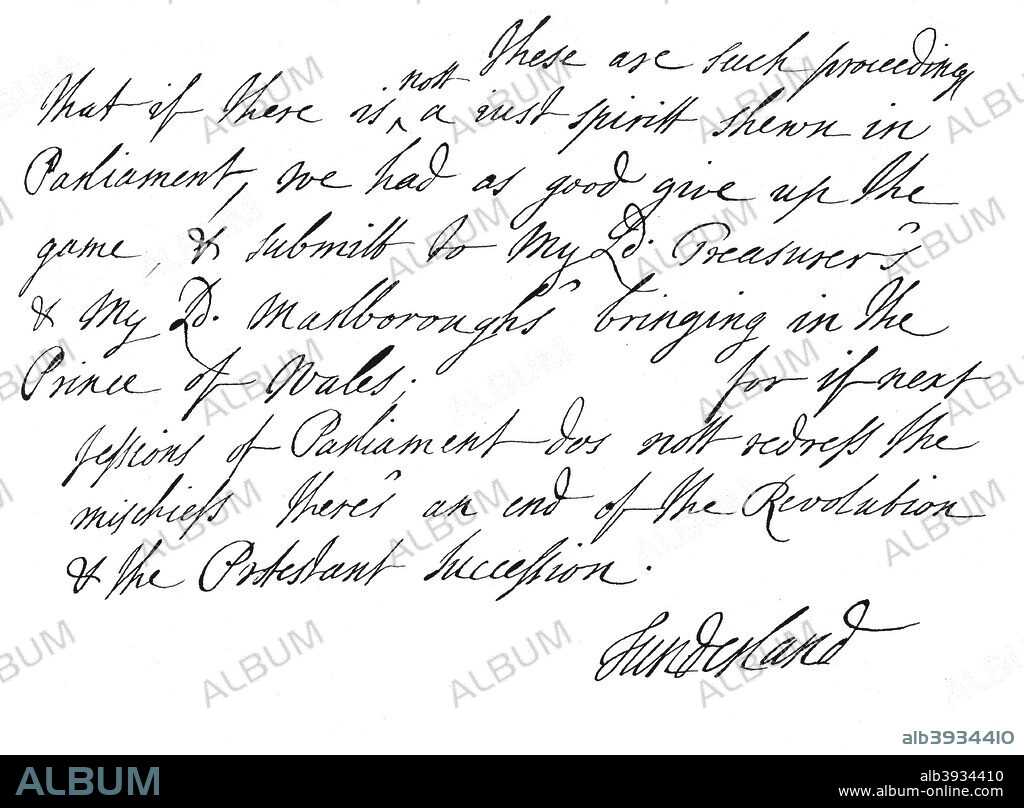 These are such proceedings
that if there is nott a just spiritt shewn in
Parliament, we had as good give up the
game, & submitt to My Ld. Treasurer's
& My Ld. Marlborough's bringing in the
Prince of Wales; for if next
sessions of Parliament dos nott redress the
mischiefs there's an end of the Revolution
& the Protestant Succession.
Sunderland
alb3934410
ALBUM
alb3934410
www.album-online.com